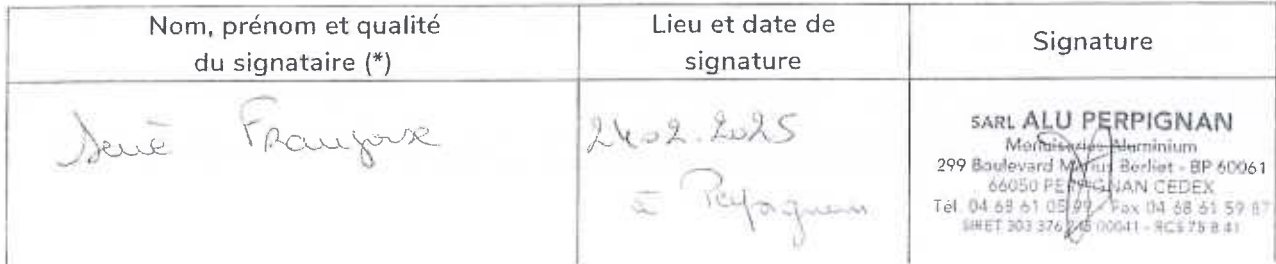 Nom, prénom et qualité
du signataire (*)
Lieu et date de
signature
Signature
Françoise
24.02.2025
à Perpignan
SARL ALU PERPIGNAN
Menuiseries Aluminium
299 Boulevard Marius Berliet - BP 60061
66050 PERPIGNAN CEDEX
Tél. 04 68 61 05 99 - Fax 04 68 61 59 87
SIRET 303 376 00041 - RCS 75 B 41